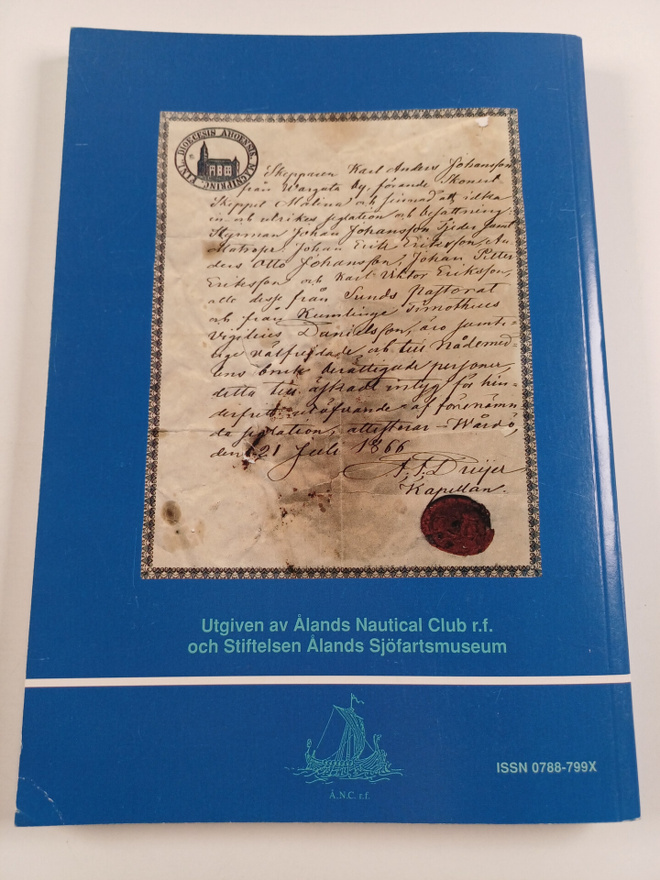 DIOECESIS ABOENSIS
Skepparen Karl Anders Johansson
från Wargata by, förande Skonert
Skeppet Malina och sinnad att idka
in och utrikes seglation och besättning:
Styrman Johan Johansson Sjeder samt
Matroser Johan Erik Eriksson, An-
ders Otto Johansson, Johan Petter
Eriksson och Karl Viktor Eriksson,
alle desse från Sunds pastorat
och från Kumlinge Timotheus
Vigilius Danielsson, äro samt-
lige välfrejdade och till Nådemed-
lens bruk berättigade personer,
detta till äskadt intyg för hin-
derfritt utöfvande af förenämn-
da seglation, attesterar Wårdö,
den 21 Juli 1866
Kapellan.
Utgiven av Ålands Nautical Club r.f.
och Stiftelsen Ålands Sjöfartsmuseum
Å.N.C. r.f.
ISSN 0788-799X